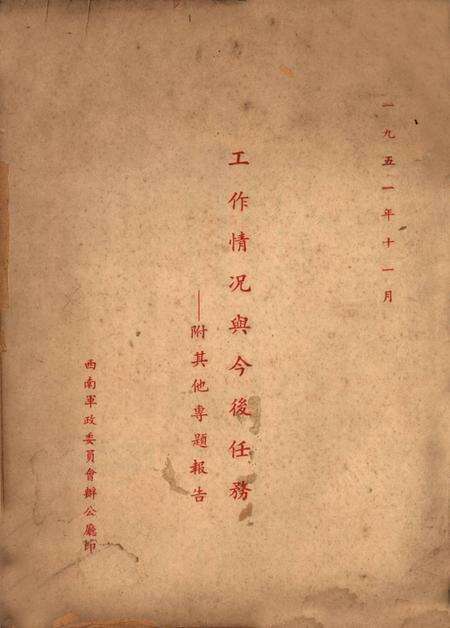 一九五一年十一月
工作情况與今後任務
——附其他專題報告
西南軍政委員會辦公廳印